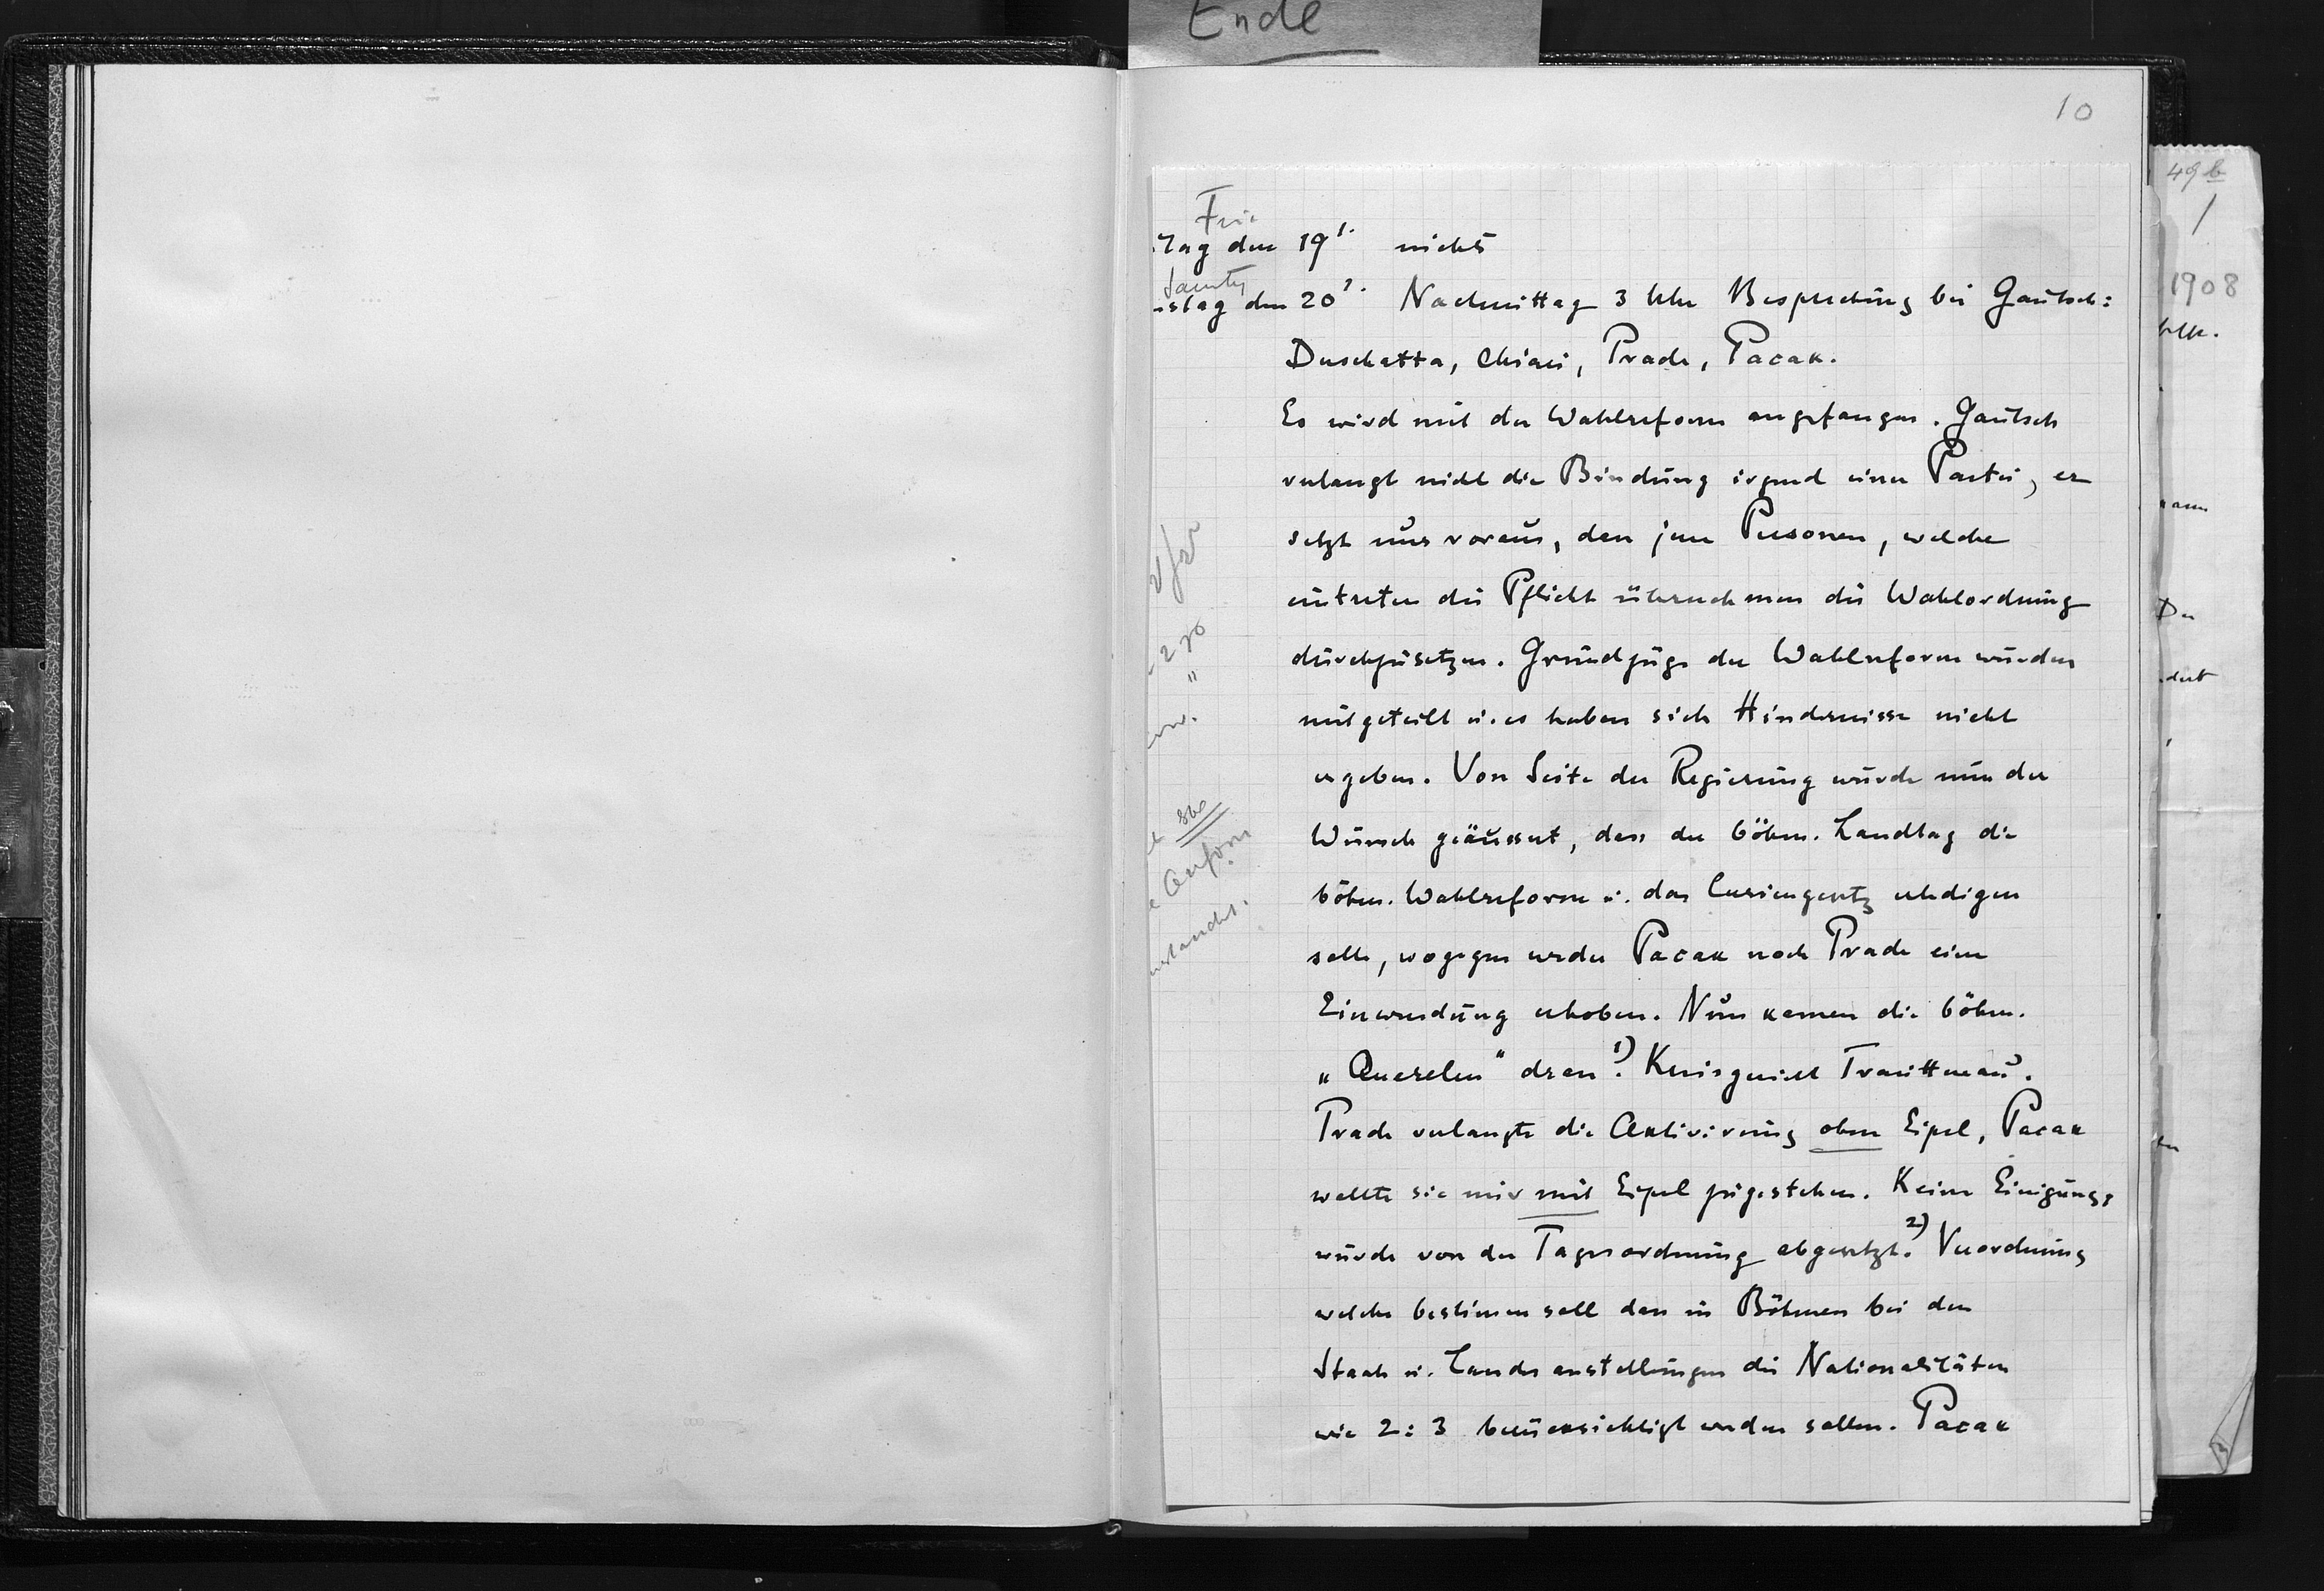 Ende
10
Frei
tag den 19/1. nichts
Samstg
nstag den 20/1. Nachmittag 3 Uhr Besprechung bei Gautsch:
Duschatta, Chiari, Prade, Pacak.
Es wird mit der Wahlreform angefangen. Gautsch
verlangt nicht die Bindung irgend einer Partei, er
setzt nur voraus, dass jene Personen, welche
eintreten die Pflicht übernehmen die Wahlordnung
durchzusetzen. Grundzüge der Wahlreform wurden
mitgeteilt u. es haben sich Hindernisse nicht
ergeben. Von Seite der Regierung wurde nun der
Wunsch geäussert, dass der böhm. Landtag die
böhm. Wahlreform u. das Curiengesetz erledigen
solle, wogegen weder Pacak noch Prade eine
Einwendung erhoben. Nun kamen die böhm.
„Querelen" dran.1) Kreisgericht Trauttenau.
Prade verlangte die Aktivirung ohne Eipel, Pacak
wollte sie nur mit Eipel zugestehen. Keine Einigung,
wurde von der Tagesordnung abgesetzt.2) Verordnung
welche bestimen soll dass in Böhmen bei den
Staats u. Landes anstellungen die Nationalitäten
wie 2:3 berücksichtigt werden sollen. Pacak
49b
1908